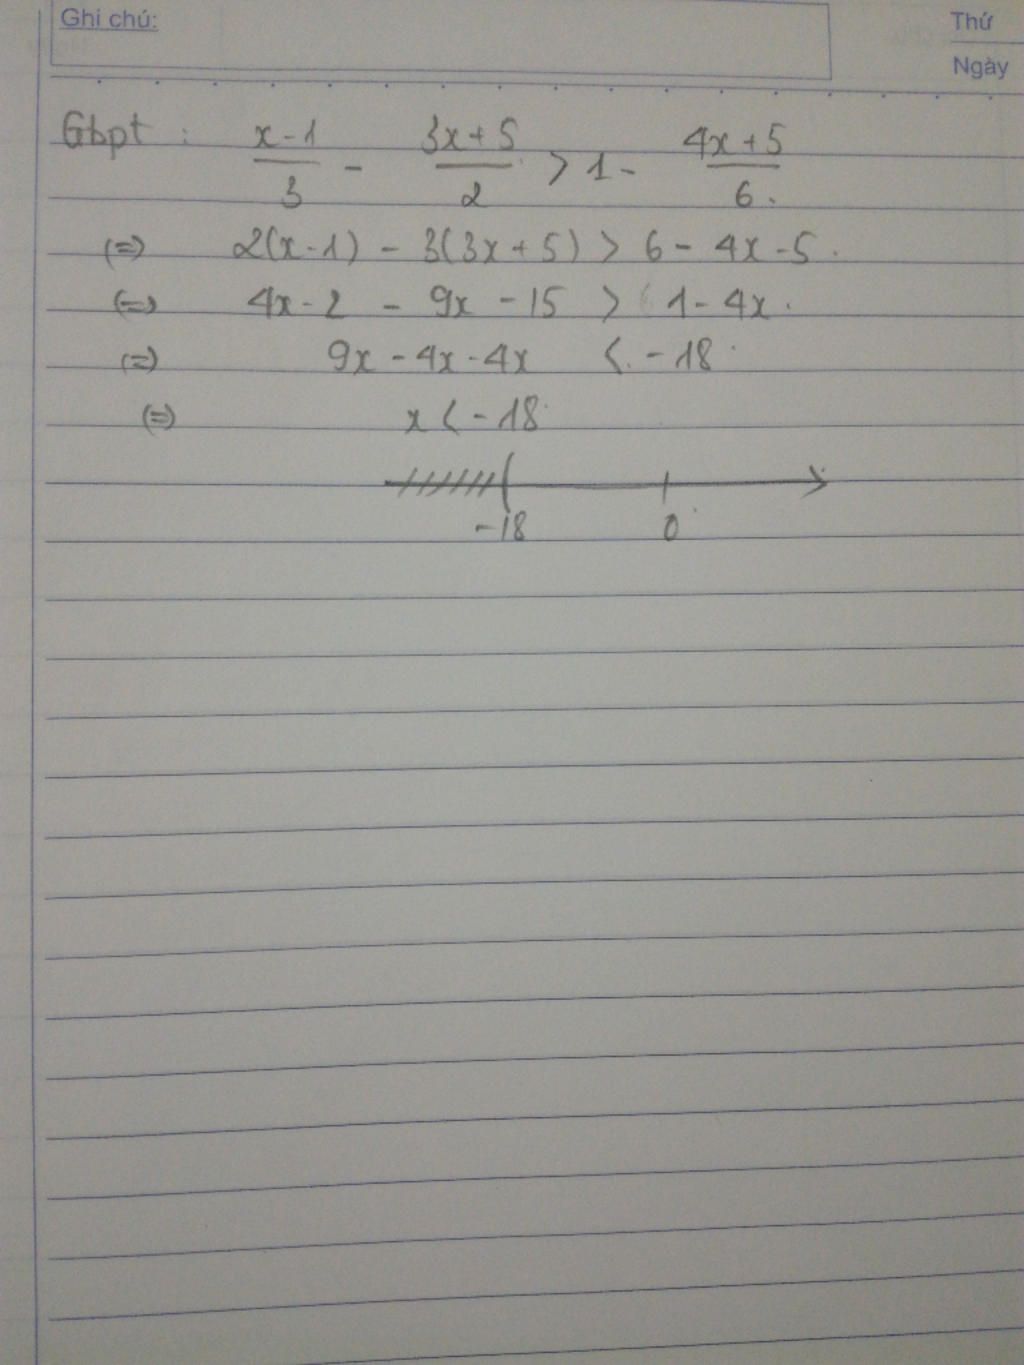 Ghi chú:
Thứ
Ngày
Gbpt : x-1/3 - 3x+5/2 > 1 - 4x+5/6.
(=) 2(x-1) - 3(3x+5) > 6 - 4x - 5.
(=) 4x - 2 - 9x - 15 > 1 - 4x.
(=) 9x - 4x - 4x < -18
(=) x < -18
-18 0